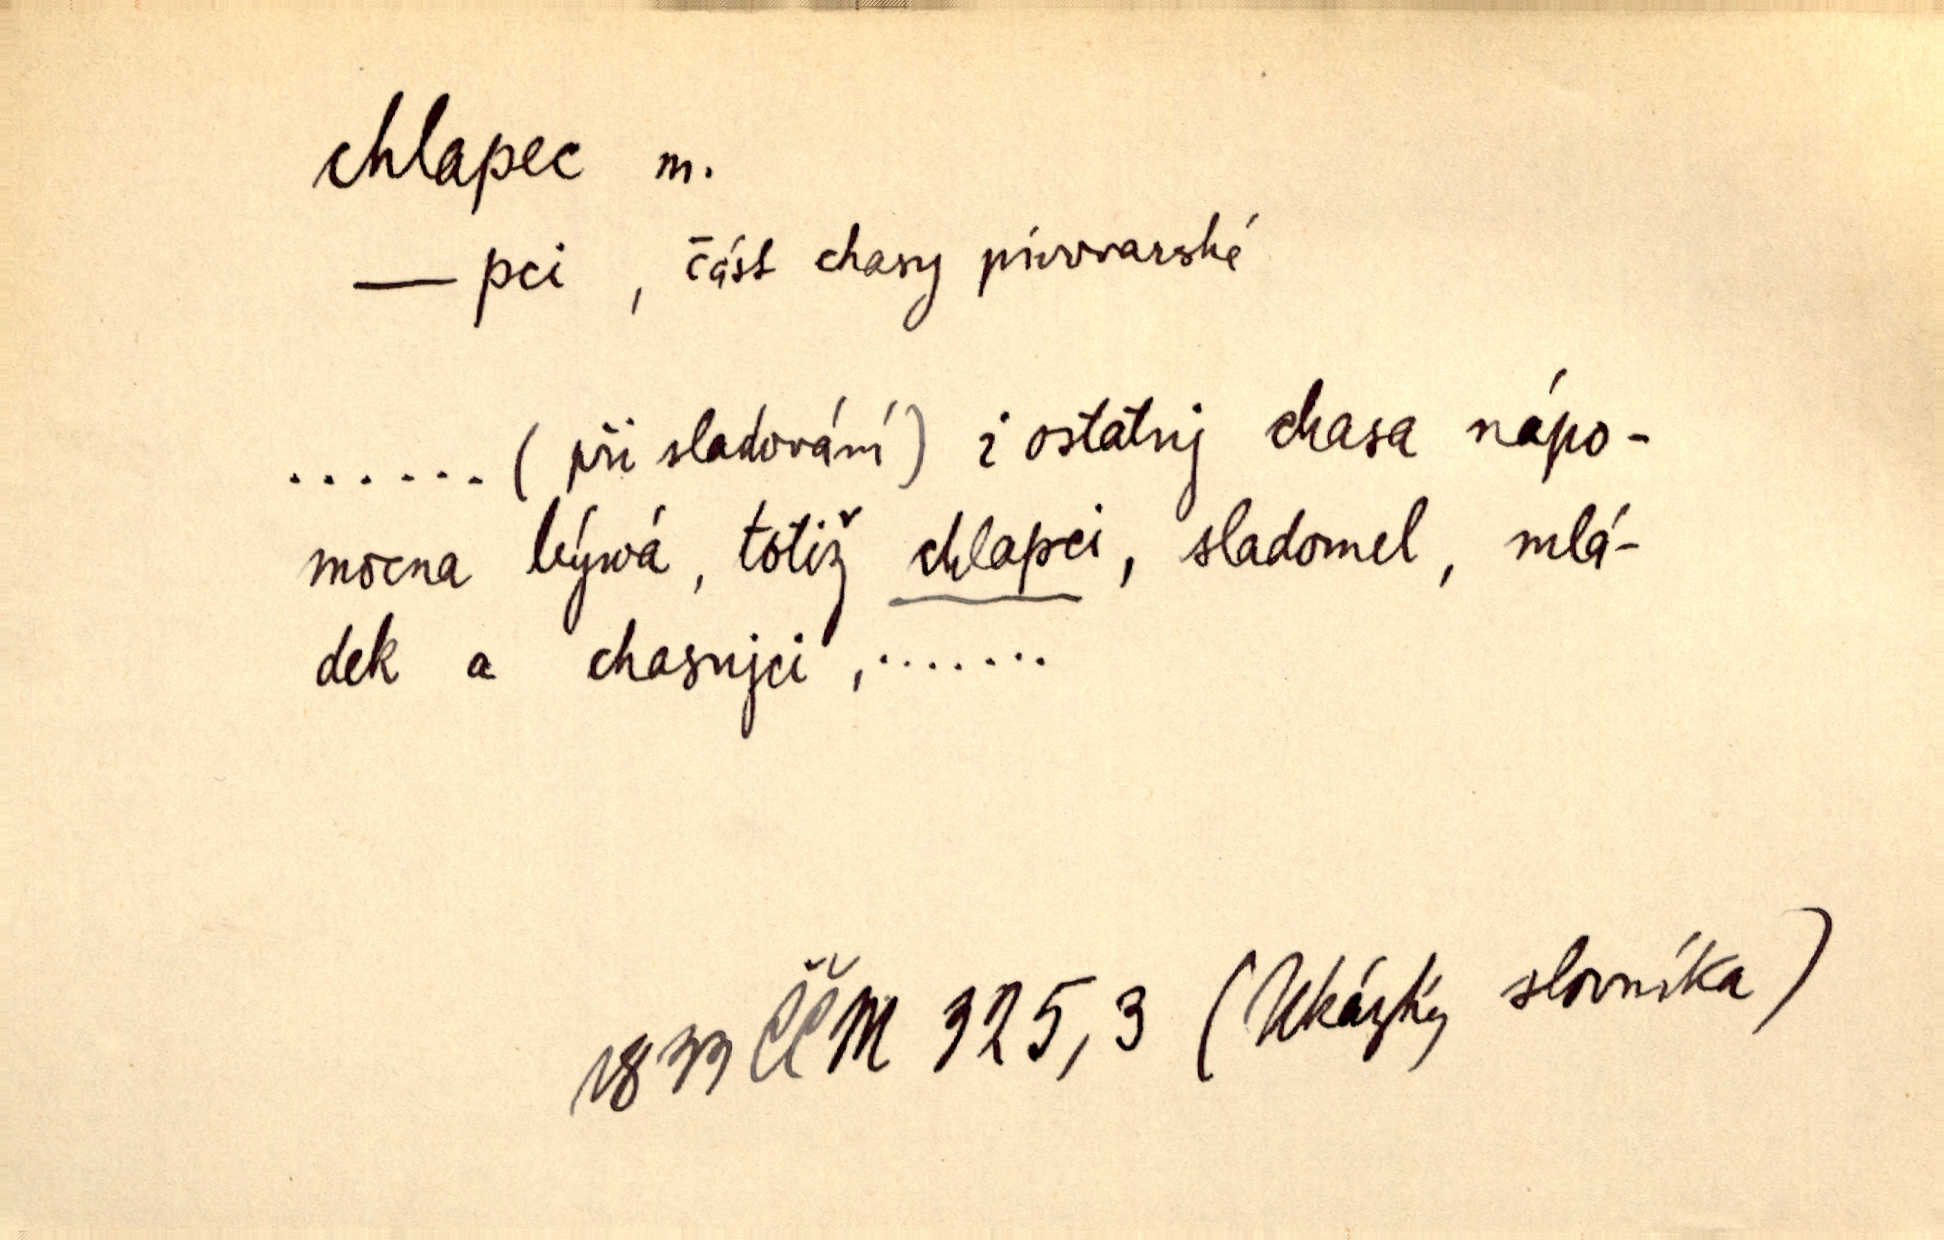 chlapec m.
— pci , část chasy pivovarské
......( při sladování) i ostatnj chasa nápo-
mocna býwá, totiž chlapci, sladomel, mlá-
dek a chasnjci,.......
1833 ČČM 325,3 (Ukázky slovníka)